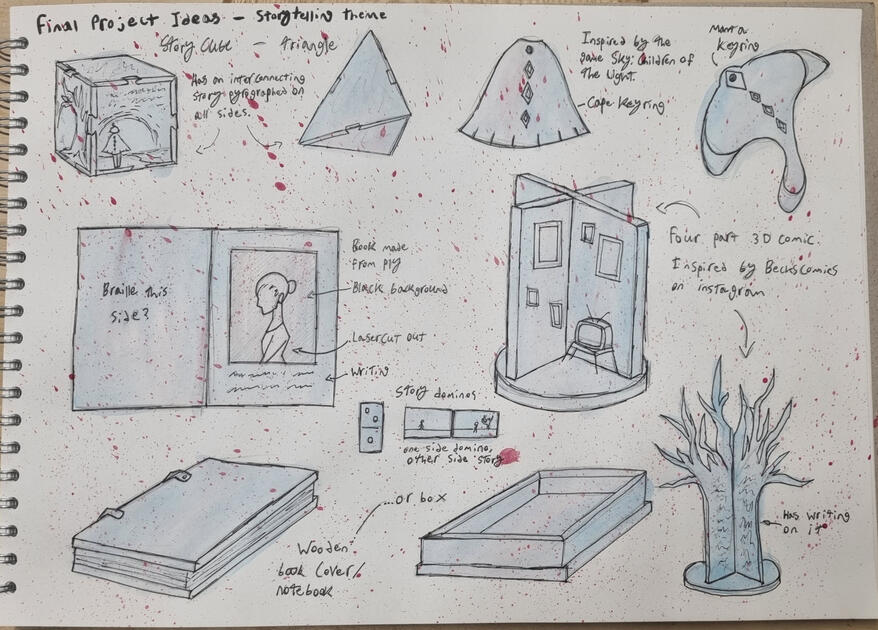 Final Project Ideas - Storytelling theme
Story Cube - triangle
Has an interconnecting
story pyrographed on
all sides.
Inspired by the
game Sky: Children of
the Light.
Cape Keyring
Manta
Keyring
Four part 3D comic.
Inspired by Bechscomics
on instagram
Braille this
side?
Book made
from Ply
Black background
Lasercut out
Writing
Story dominos
one side domino,
other side story
...or box
Wooden
book cover/
notebook
Has writing
on it